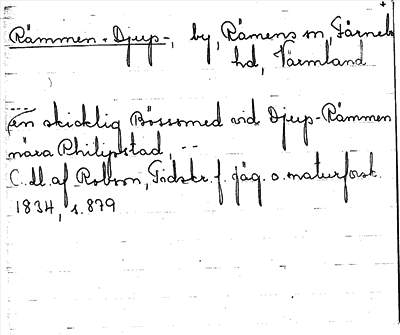 Rämmen, Djup-, by, Rämens sn, Färneb.
hd, Värmland
en skicklig Bössomed vid Djup-Rämmen
nära Philipstad, --
C. U. af Robson, Tidskr. f. jäg. o. naturforsk.
1834, s. 879